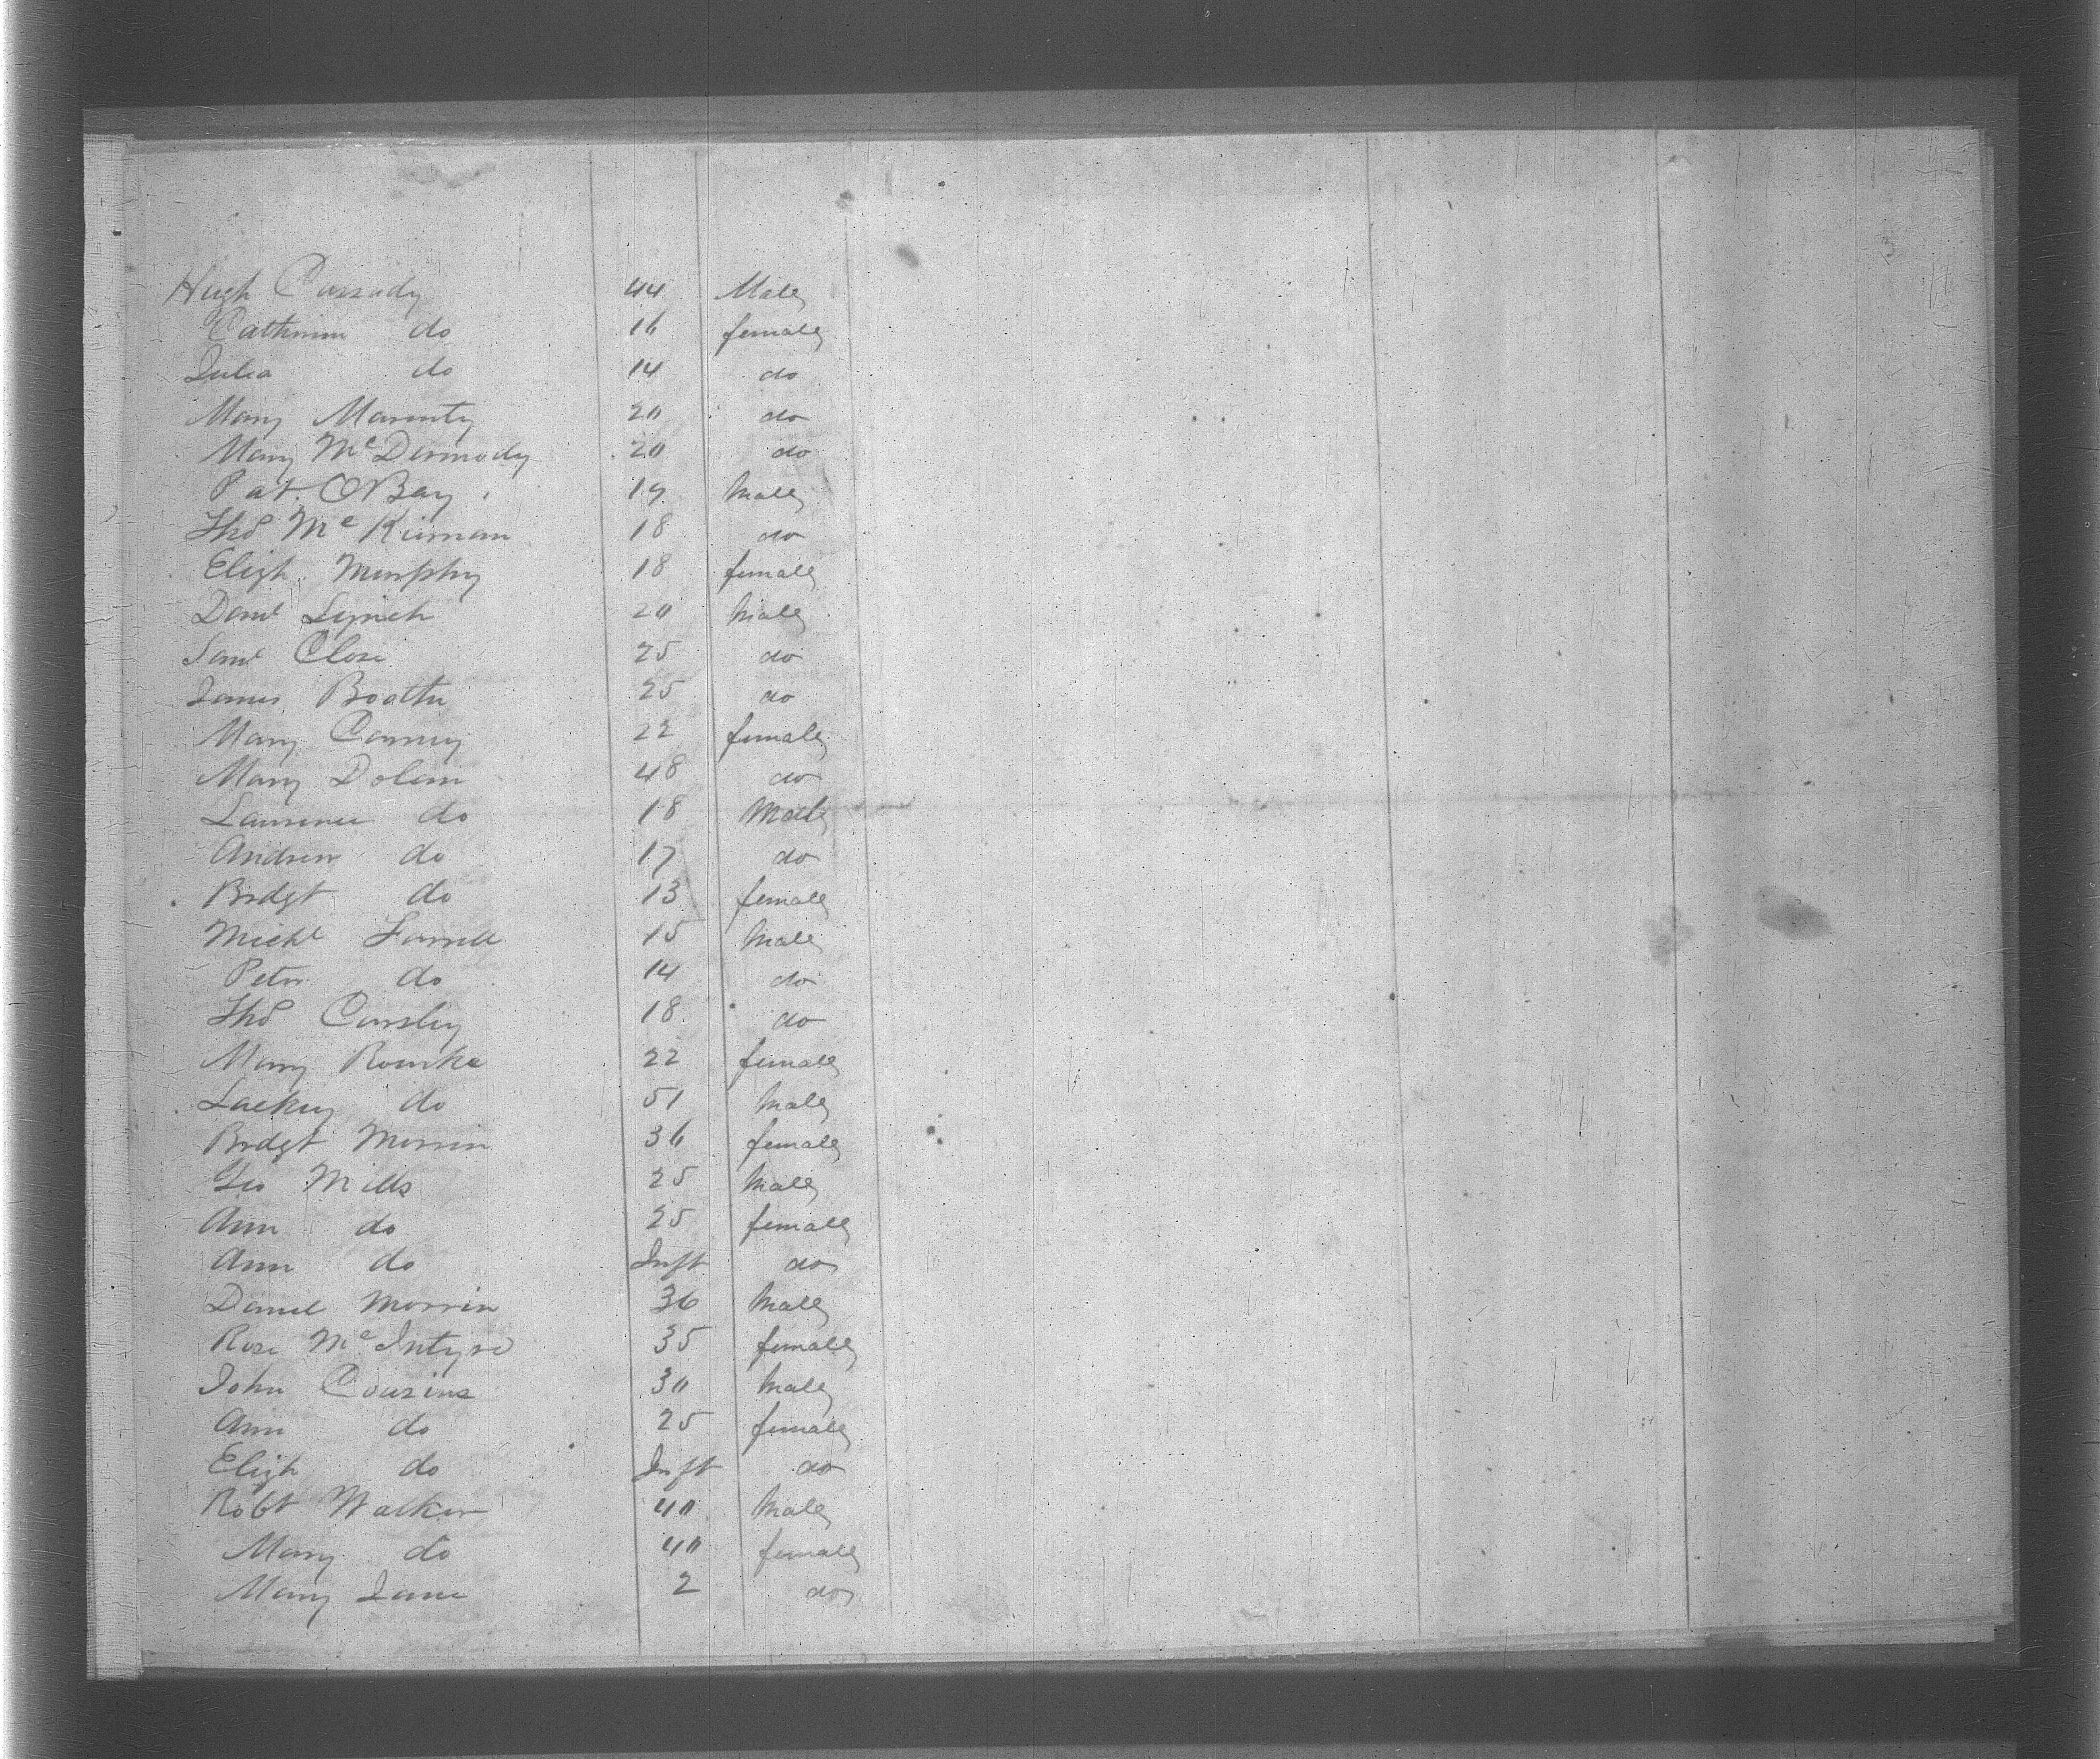 Hugh Cassady 44 Male
Cathrin do 16 female
Julia do 14 do
Mary 20 do
Mary McDermody 20 do
Pat. OBay 19 Male
Thos McKiernan 18 do
Elizh. Murphy 18 female
Danl Lynch 20 Male
Saml Close 25 do
James Booth 25 do
Mary Carney 22 female
Mary Dolan 48 do
Lawrence do 18 Male
Andrew do 17 do
Brdgt do 13 female
Michl Farrell 15 Male
Peter do 14 do
Thos 18 do
Mary Rourke 22 female
Lackey do 51 Male
Brdgt Morrin 36 female
Geo Mills 25 Male
Ann do 25 female
Ann do Inft do
Daniel Morrin 36 Male
Rose McIntyre 35 female
John Cousins 30 Male
Ann do 25 female
Elizh do Inft do
Robt Walker 40 Male
Mary do 40 female
Mary Jane 2 do